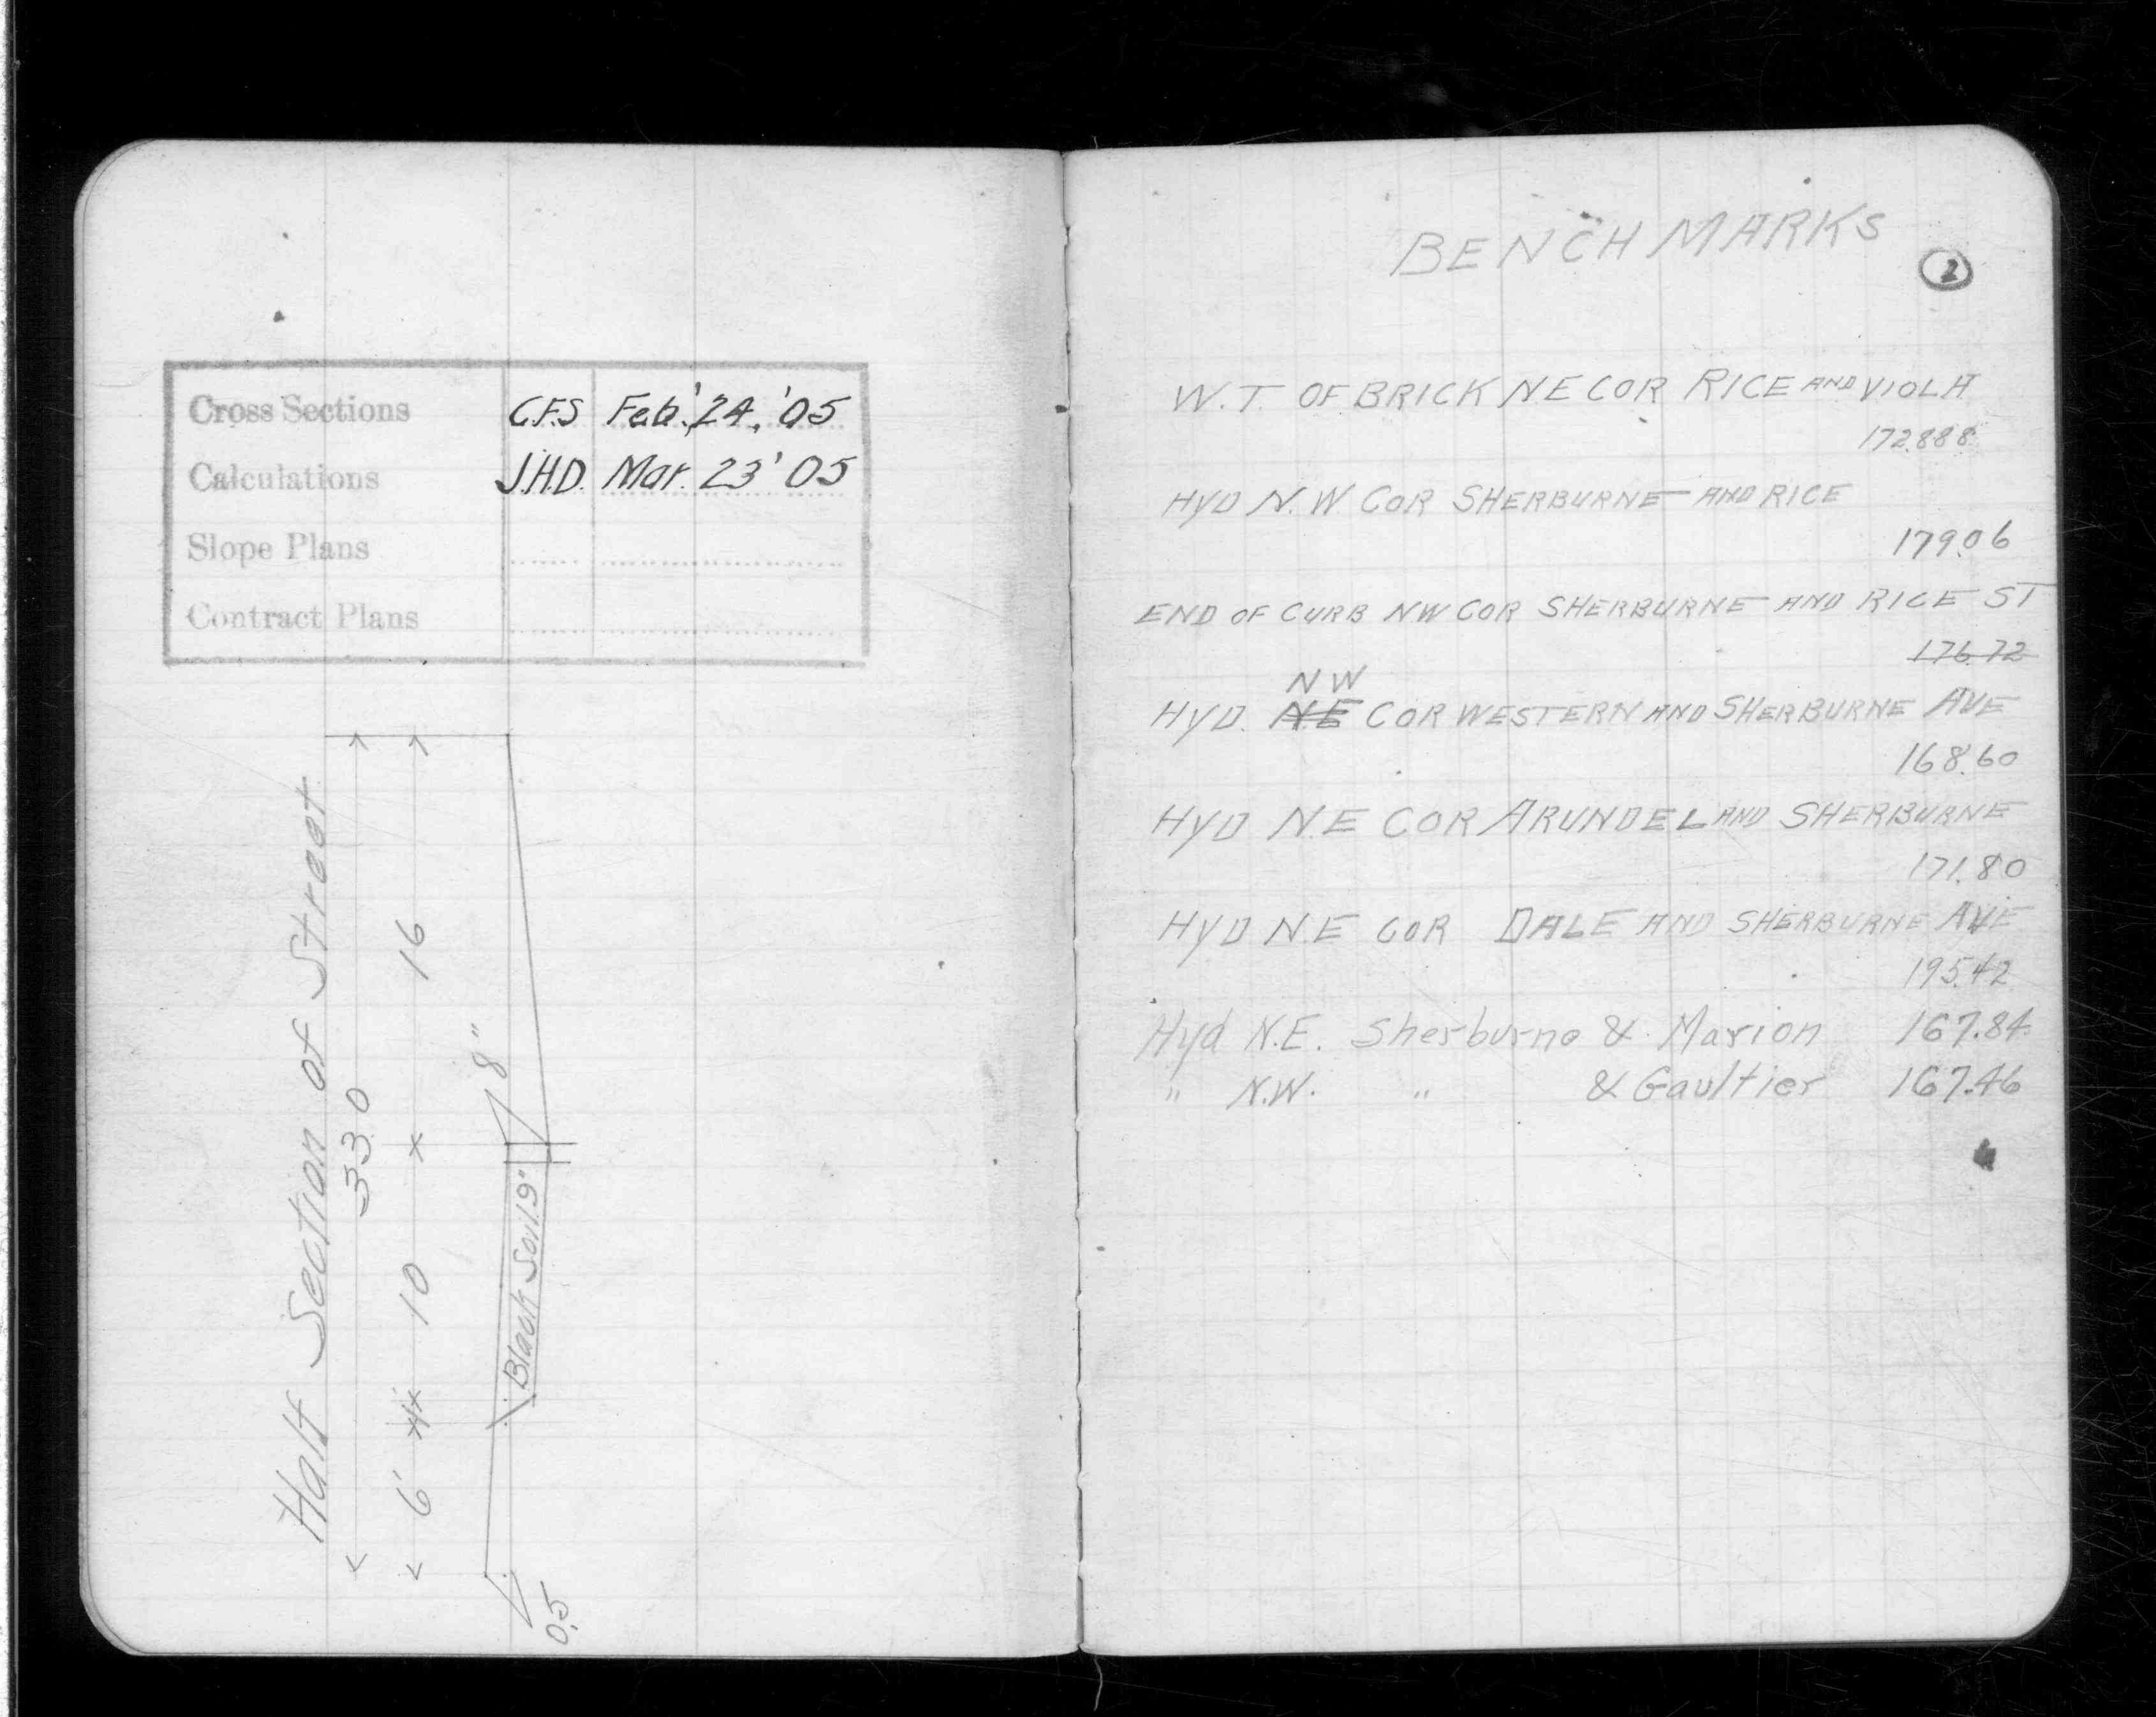 Cross Sections C.F.S Feb. 24, '05
Calculations J.H.D. Mar. 23' 05
Slope Plans
Contract Plans
Half Section of Street
33.0
6' 10 16
8"
Black Soil 9"
0.5
BENCH MARKS
2
W.T. OF BRICK NE COR RICE AND VIOLA
172.888
HYD N.W COR SHERBURNE AND RICE
179.06
END OF CURB NW COR SHERBURNE AND RICE ST
176.72
NW
HYD. N.E COR WESTERN AND SHERBURNE AVE
168.60
HYD NE COR ARUNDEL AND SHERBURNE
171.80
HYD NE COR DALE AND SHERBURNE AVE
195.42
Hyd N.E. Sherburne & Marion 167.84
" N.W. " & Gaultier 167.46